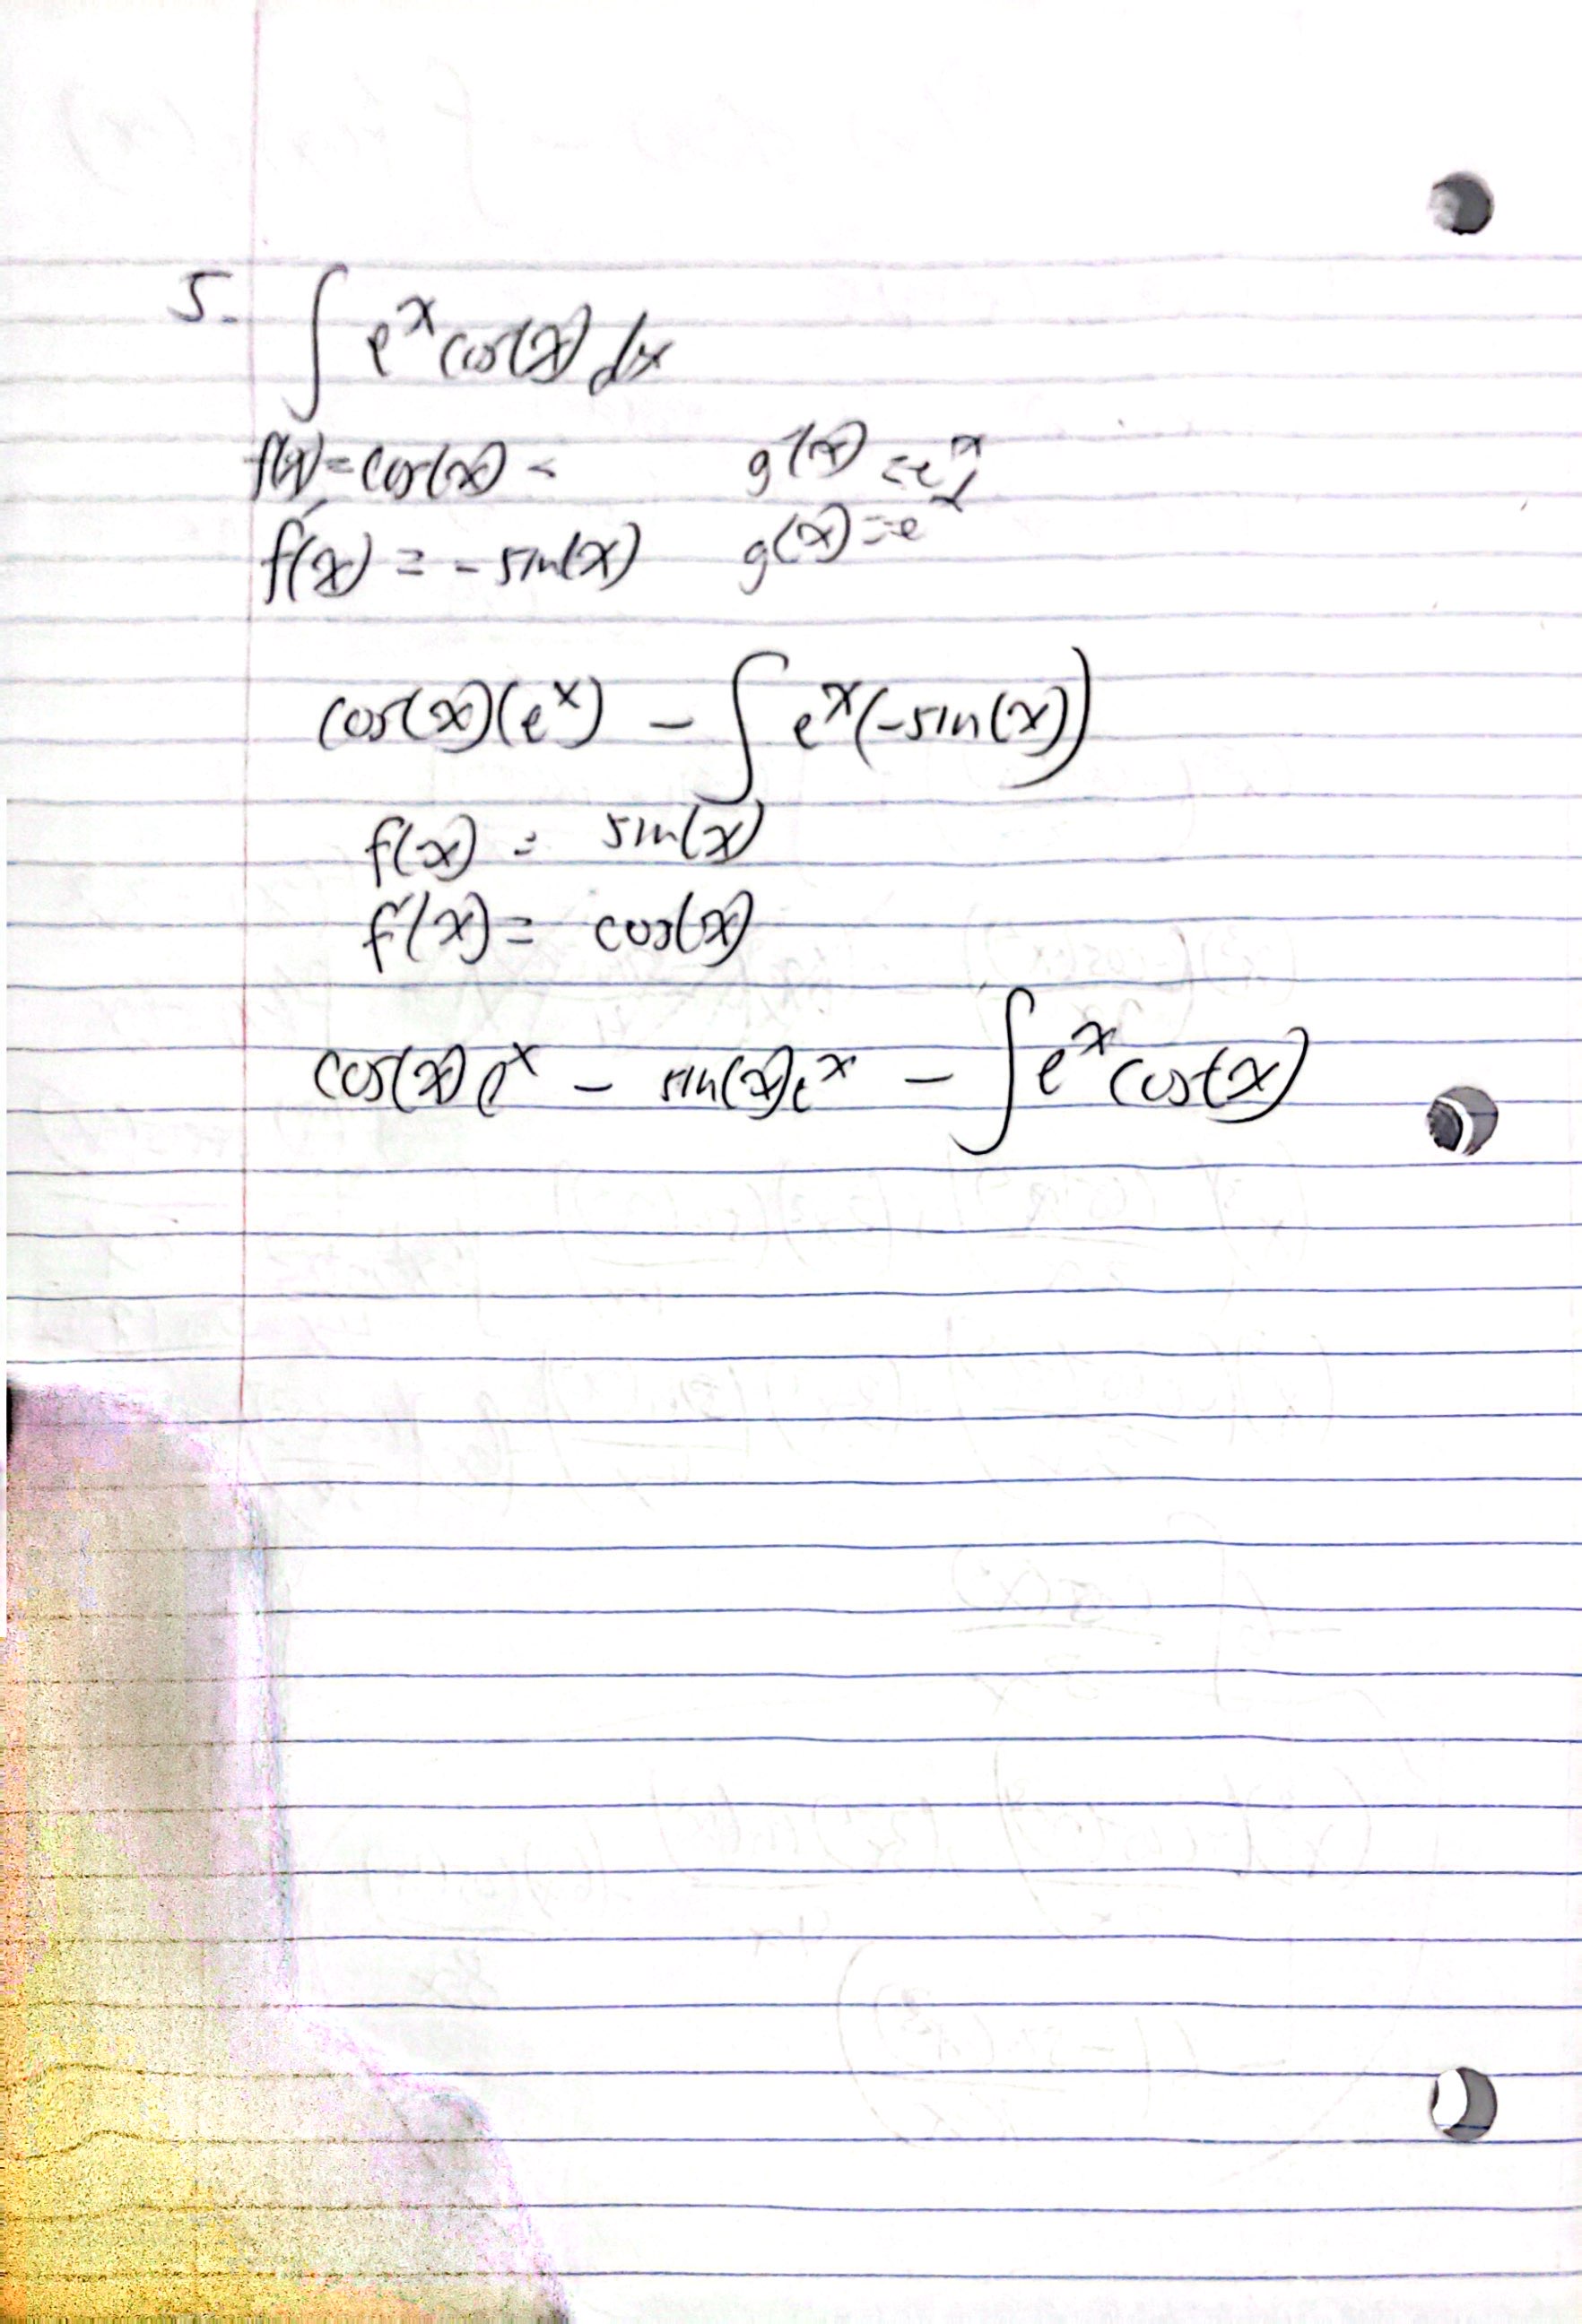 5. ∫ e^x cos(x) dx
f(x) = cos(x) g'(x) = e^x
f'(x) = - sin(x) g(x) = e^x
cos(x)(e^x) - ∫ e^x(-sin(x))
f(x) = sin(x)
f'(x) = cos(x)
cos(x)e^x - sin(x)e^x - ∫ e^x cos(x)